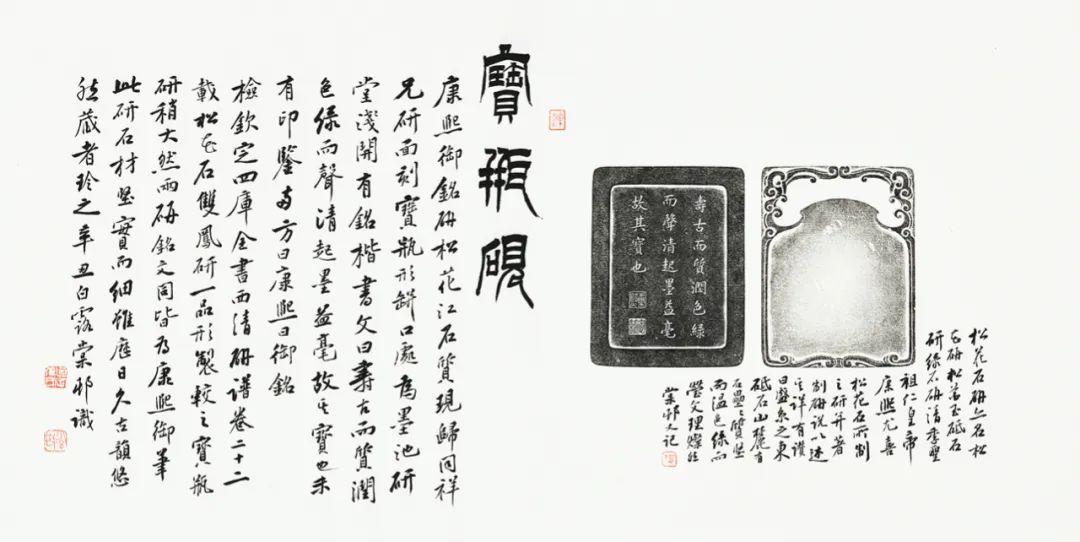 松花石研亦名松
花研松花玉砥石
研綠石研清聖
祖仁皇帝
康熙尤喜
松花石所制
之研并著
制研說以述
之詳有讚
曰盛京之東
砥石山麓有
石壘壘質堅
而温色綠而
瑩文理燦然
棠邨又記
壽古而質潤色綠
而聲清起墨益毫
故其寶也
寶瓶硯
康熙御銘硏松花江石質現歸同祥
兄研面刻寶瓶形缾口處為墨池研
堂淺開有銘楷書文曰壽古而質潤
色綠而聲清起墨益毫故其寶也末
有印鑒兩方曰康熙曰御銘
檢欽定四庫全書西清硏譜卷二十二
載松花石雙鳳研一品形製較之寶瓶
研稍大然兩硏銘文同皆為康熙御筆
此研石材堅實而細雖歷日久古韻悠
然藏者珍之辛丑白露棠邨識